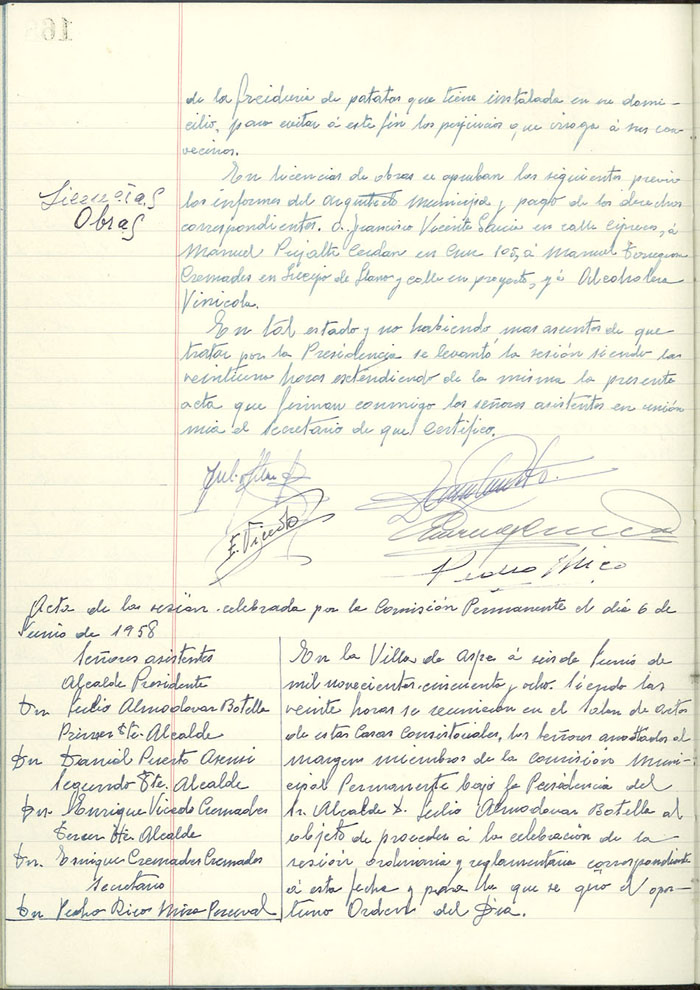 de la freiduria de patatas que tiene instalada en su domi-
cilio, para evitar á este fin los perjuicios que irroga á sus con
vecinos.
Licencias
Obras
En licencias de obras se aprueban las siguientes previo
los informes del Arquitecto Municipal y pago de los derechos
correspondientes. A Francisco Vicente Garcia en calle Cipreses, á
Manuel Pujalte Cerdan en Cruz 105, á Manuel
Cremades en de Llano y calle en proyecto, y á Alcoholera
Vinicola.
En tál estado y no habiendo mas asuntos de que
tratar por la Presidencia se levantó la sesión siendo las
veintiuna horas extendiendo de la misma la presente
acta que firman conmigo los señores asistentes en unión
mia el Secretario de que Certifico.
E. Vicedo
Pedro Mico
Acta de la sesión celebrada por la Comisión Permanente el dia 6 de
Junio de 1958
Señores asistentes
Alcalde Presidente
Dn Julio Almodovar Botella
Primer tte. Alcalde
Dn Daniel Puerto Asensi
Segundo Tte. Alcalde
Dn. Enrique Vicedo Cremades
Tercer tte Alcalde
Dn. Enrique Cremades Cremades
Secretario
Dn Pedro Rico Mira-Perceval
En la Villa de Aspe á seis de Junio de
mil novecientos cincuenta y ocho. Siendo las
veinte horas se reunieron en el Salon de actos
de estas Casas Consistoriales, los señores anotados al
margen miembros de la Comisión Muni-
cipal Permanente bajo la Presidencia del
Sr. Alcalde D. Julio Almodovar Botella al
objeto de proceder á la celebración de la
sesión ordinaria y reglamentaria correspondiente
á esta fecha y para la que se giró el opor-
tuno Orden del Dia.